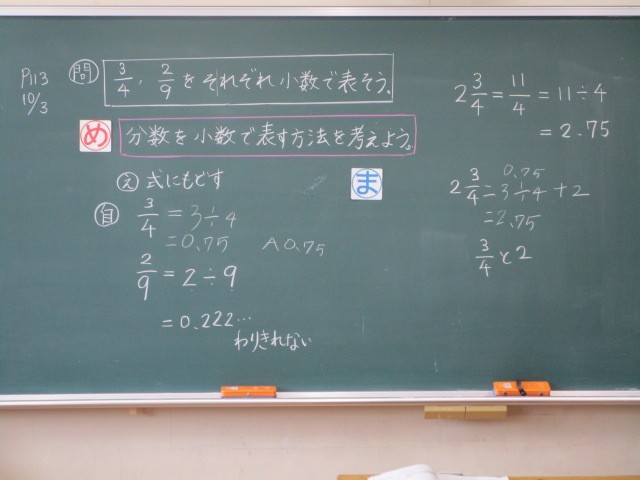 P113
10/3
問 3/4, 2/9 をそれぞれ小数で表そう。
め 分数を小数で表す方法を考えよう。
え 式にもどす
自 3/4 = 3÷4
=0.75 A0.75
2/9 = 2÷9
= 0.222…
わりきれない
ま
2 3/4 = 11/4 = 11÷4
= 2.75
0.75
2 3/4 = 3÷4 + 2
= 2.75
3/4 と 2